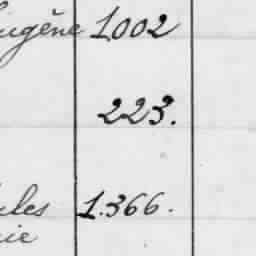 Eugène 1.002
223.
ules 1.366.
ie